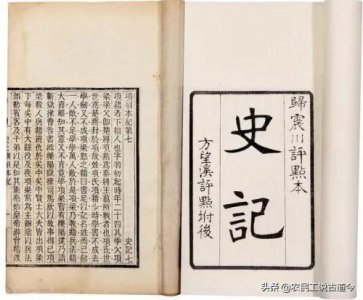 歸震川評點本
史記
方望溪評點坿後
項羽本紀第七 史記七
項籍者下相人也字羽初起時年二十四其季父項
梁梁父即楚將項燕為秦將王翦所戮者也項氏世
世為楚將封於項故姓項氏項籍少時學書不成去
學劍又不成項梁怒之籍曰書足以記名姓而已劍
一人敵不足學學萬人敵於是項梁乃教籍兵法籍
大喜略知其意又不肯竟學項梁嘗有櫟陽逮乃請
蘄獄掾曹咎書抵櫟陽獄掾司馬欣以故事得已項
梁殺人與籍避仇於吳中吳中賢士大夫皆出項梁
下每吳中有大繇役及喪項梁常為主辦陰以兵法
部勒賓客及子弟以是知其能秦始皇帝游會稽渡
头条 @农民工说古道今